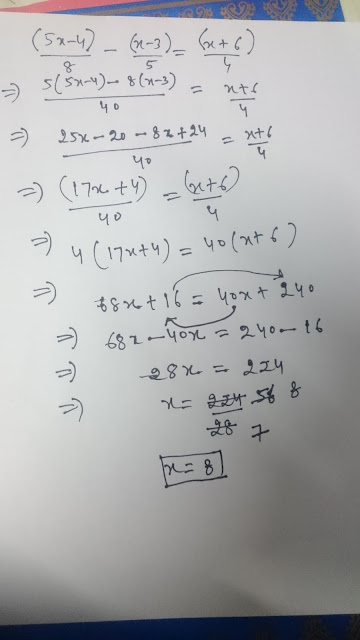 (5x-4)/8 - (x-3)/5 = (x+6)/4
⇒ 5(5x-4)-8(x-3)/40 = x+6/4
⇒ 25x-20-8x+24/40 = x+6/4
⇒ (17x+4)/40 = (x+6)/4
⇒ 4(17x+4) = 40(x+6)
⇒ 68x+16 = 40x+240
⇒ 68x-40x = 240-16
⇒ 28x = 224
⇒ x = 224/28 56/7 8
x = 8